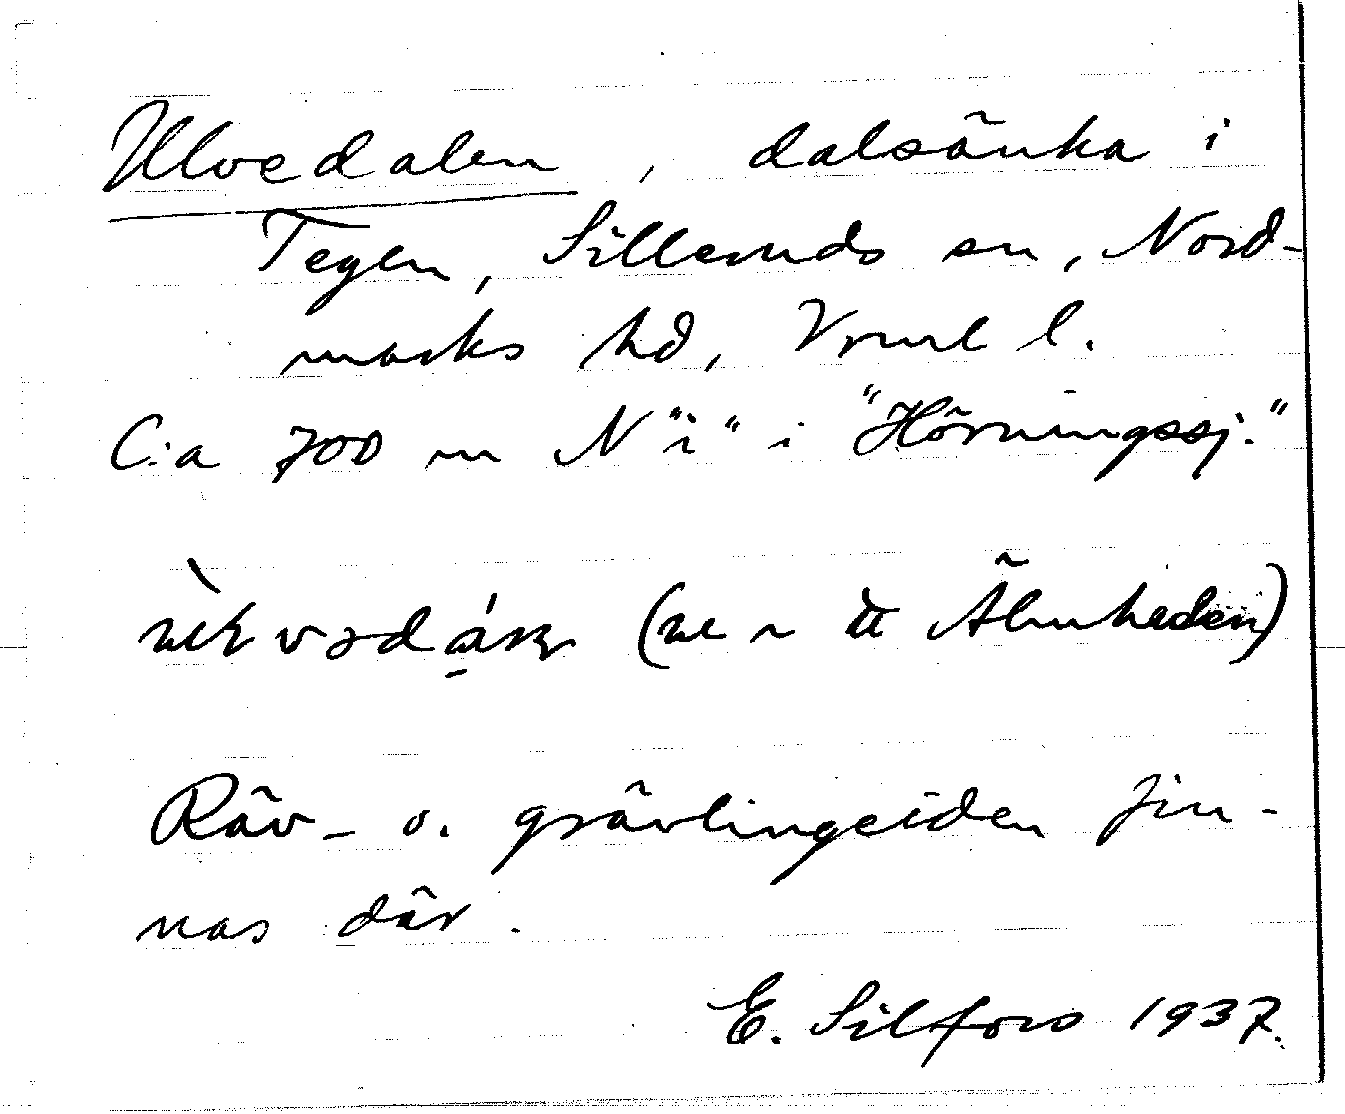 Ulvedalen, dalsänka i
Tegen, Silleruds sn, Nord-
marks hd, Vrml l.
C:a 700 m N "i" i "Hörningssj."
(
Älmheden)
Räv- o. grävlingeiden fin-
nas där.
E. Silfors 1937.